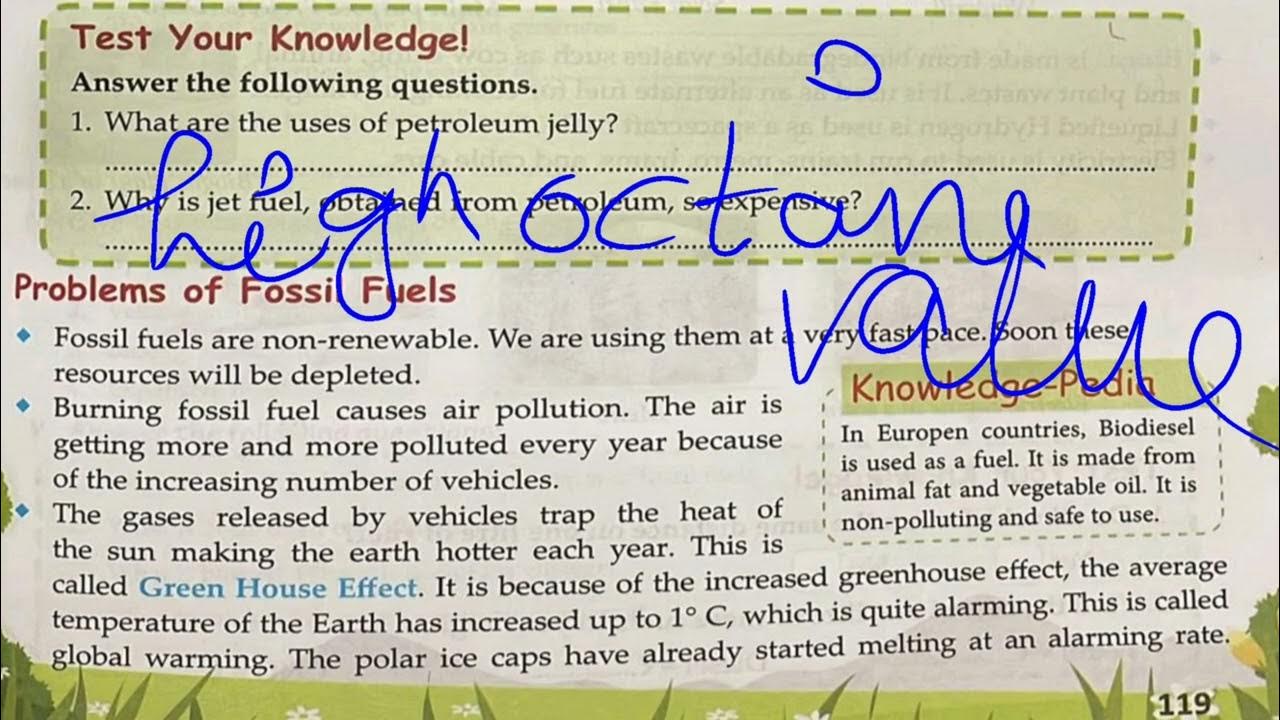 Test Your Knowledge!
Answer the following questions.
1. What are the uses of petroleum jelly?
2. Why is jet fuel, obtained from petroleum, so expensive?
high octane
value
Problems of Fossil Fuels
Fossil fuels are non-renewable. We are using them at a very fast pace. Soon these
resources will be depleted.
Burning fossil fuel causes air pollution. The air is
getting more and more polluted every year because
of the increasing number of vehicles.
The gases released by vehicles trap the heat of
the sun making the earth hotter each year. This is
called Green House Effect. It is because of the increased greenhouse effect, the average
temperature of the Earth has increased up to 1° C, which is quite alarming. This is called
global warming. The polar ice caps have already started melting at an alarming rate.
Knowledge-Pedia
In Europen countries, Biodiesel
is used as a fuel. It is made from
animal fat and vegetable oil. It is
non-polluting and safe to use.
119